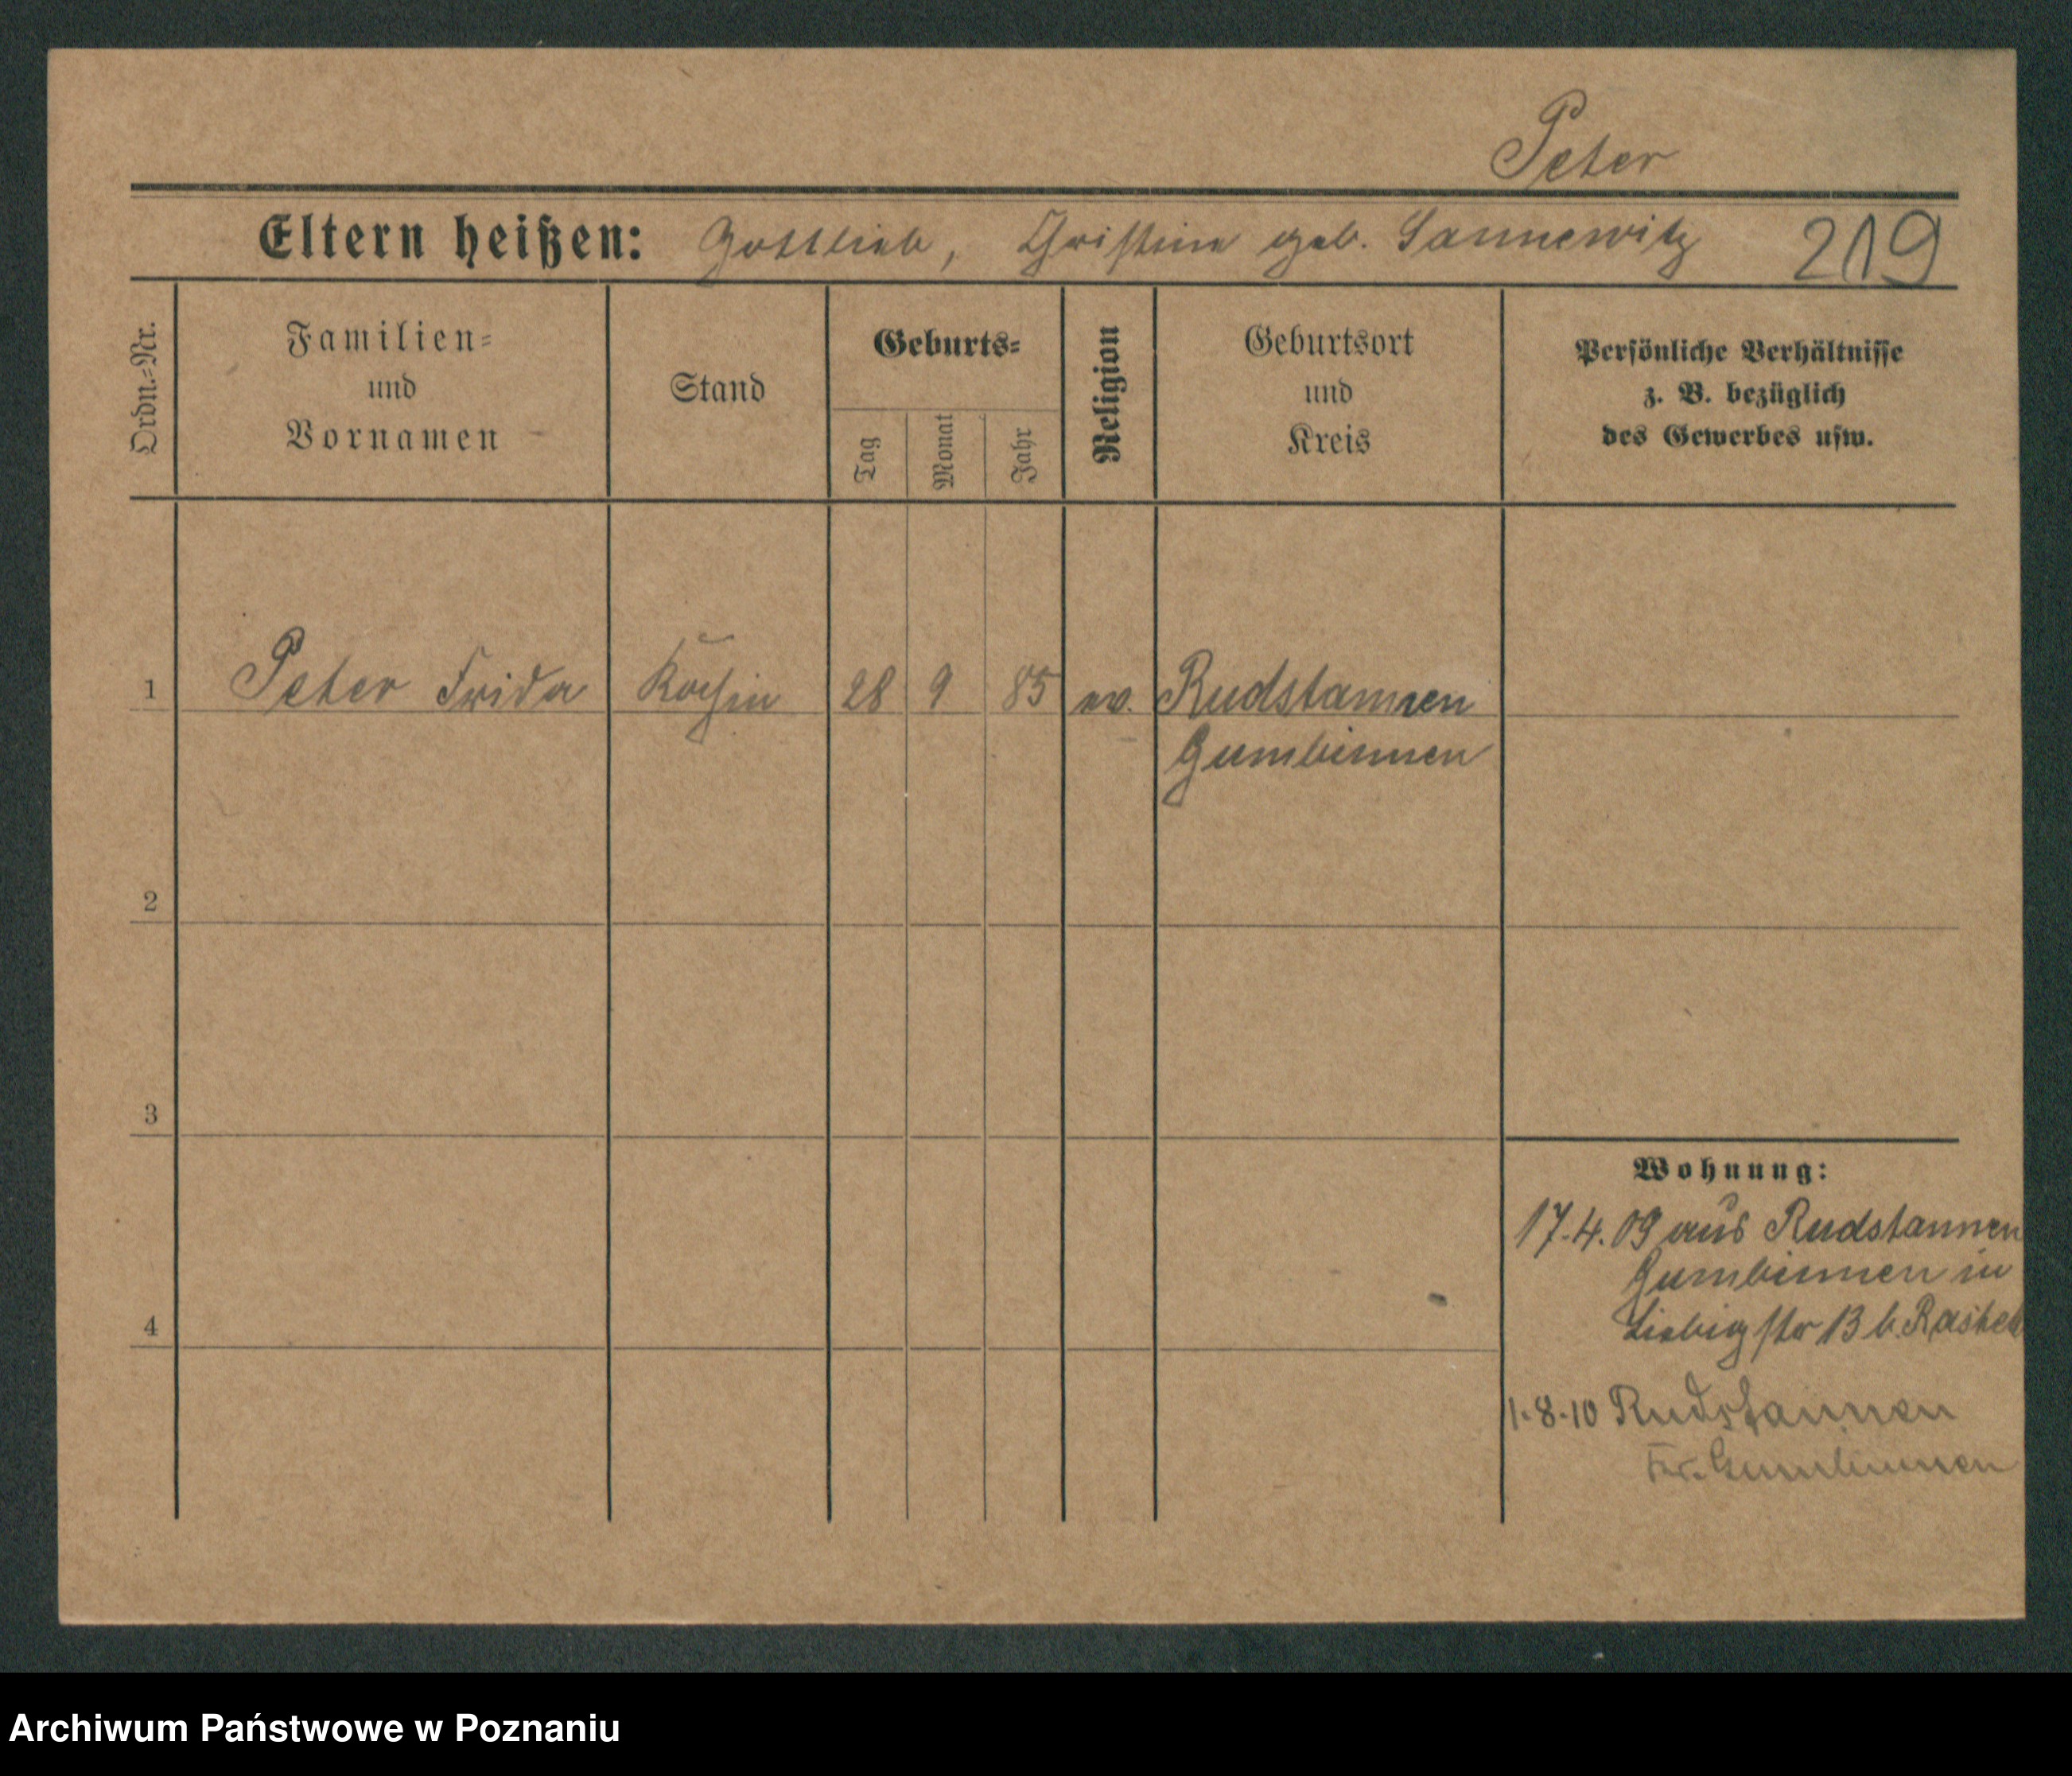 Peter
Eltern heißen: Gottlieb, Christine geb. Sannewitz 219
Ordn.-Nr.
Familien-
und
Vornamen
Stand
Geburts-
Tag
Monat
Jahr
Religion
Geburtsort
und
Kreis
Persönliche Verhältnisse
z. B. bezüglich
des Gewerbes usw.
1 Peter Frida Köchin 28 9 85 ev. Rudstannen
Gumbinnen
2
3
4
Wohnung:
17.4.09 aus Rudstannen
Gumbinnen in
Liebigstr 13 b.
1.8.10 Rudstannen
Kr. Gumbinnen
Archiwum Państwowe w Poznaniu